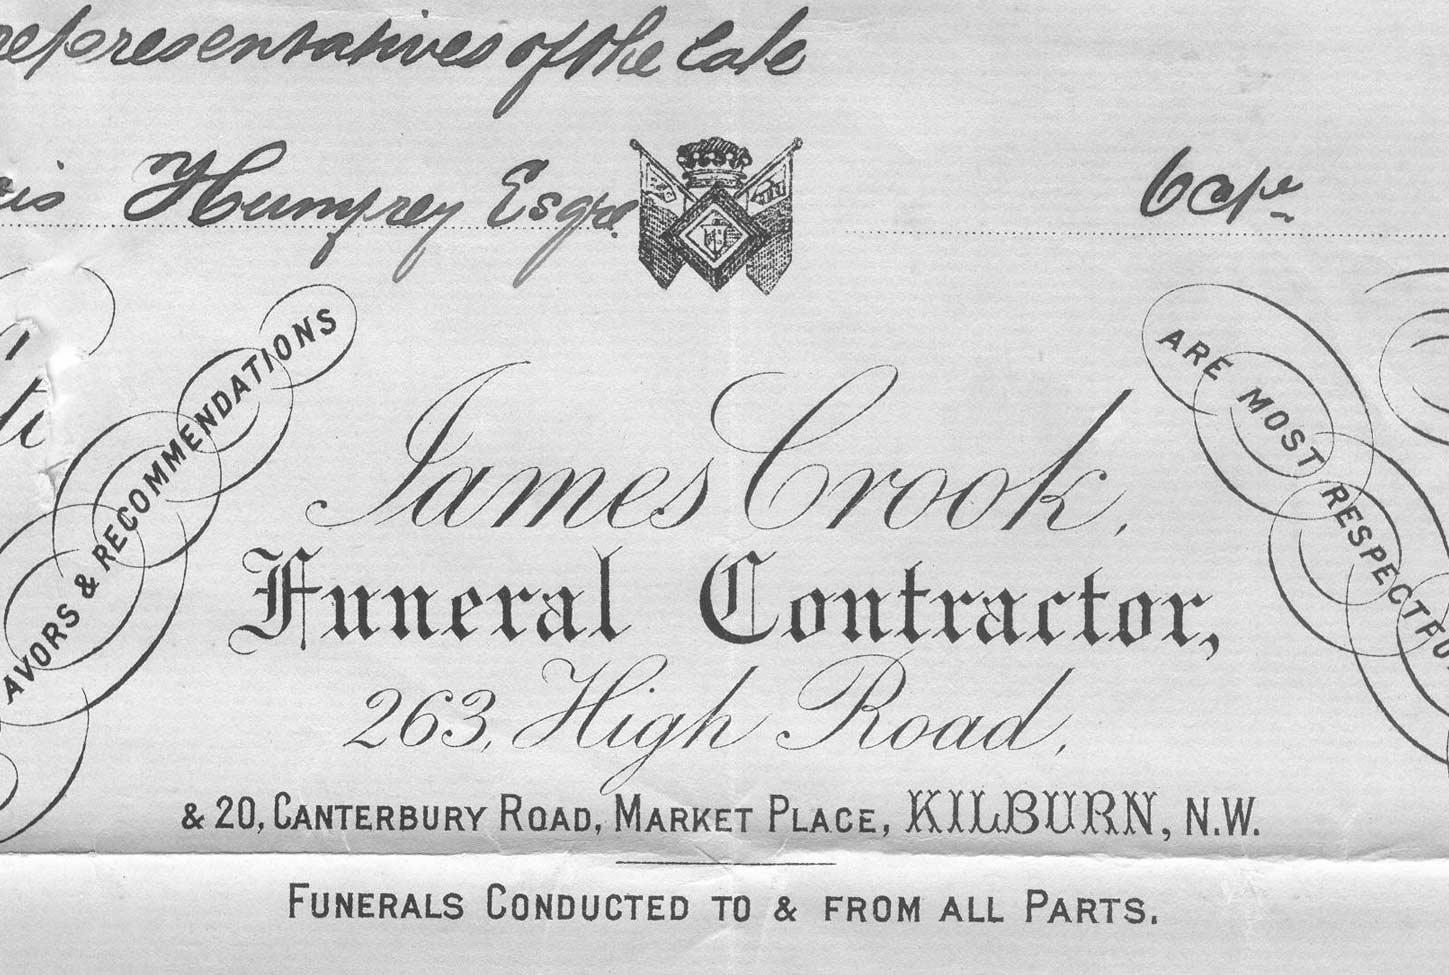 representatives of the late
Humfrey Esqre
AVORS & RECOMMENDATIONS
ARE MOST RESPECTFU
James Crook,
Funeral Contractor,
263, High Road,
& 20, CANTERBURY ROAD, MARKET PLACE, KILBURN, N.W.
FUNERALS CONDUCTED TO & FROM ALL PARTS.